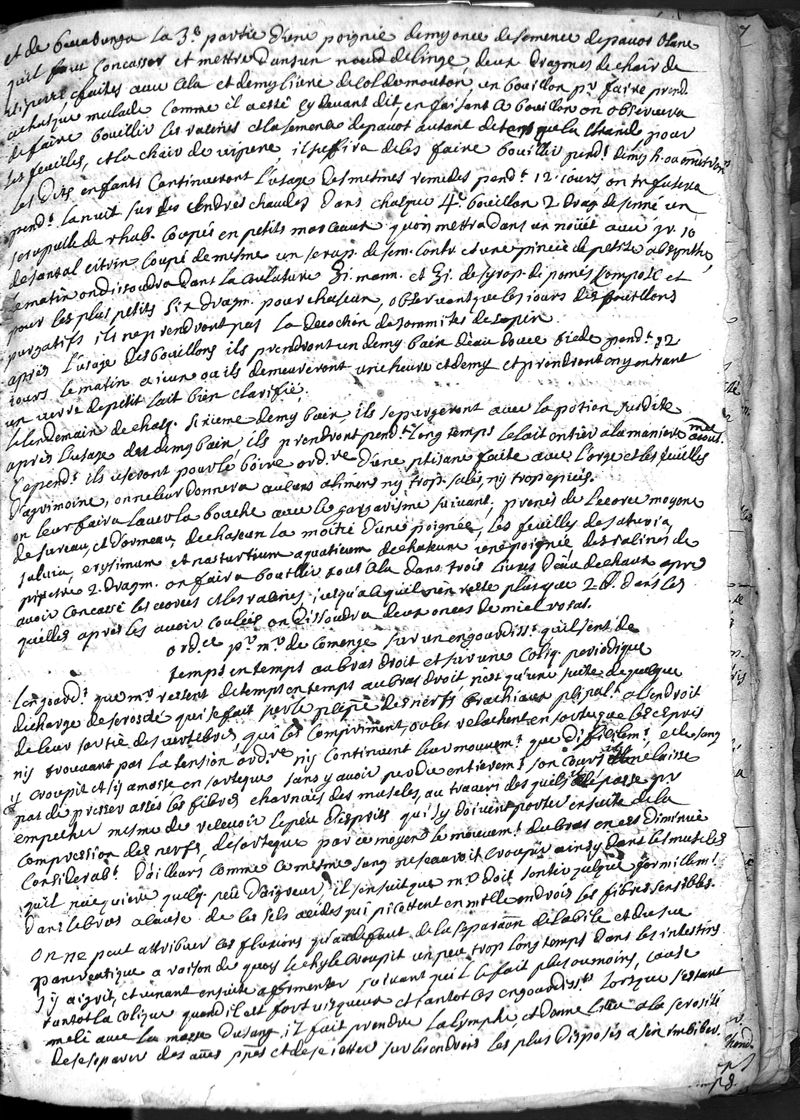 et de beccabunga la 3e partie d'une poignée demy once de semence de pavot blanc
qu'il faut concasser et mettre dans un noud de linge deux dragmes de chair de
vipere faites avec cela et demy livre de col de mouton un bouillon pr faire prend
a chasque malade comme il a esté cy devant dit, en faisant ce bouillon on observera
de faire bouillir les racines et la semence de pavot autant de temps que la viande pour
les feuilles, et la chair de vipere il suffira de les faire bouillir pendt demy h. ou
Les dits enfants continueront l'usage des mesmes remedes pendt 12 jours, on infusera
pendt la nuit sur des cendres chaudes dans chasque 4e bouillon 2 drag. de senné un
scrupulle de rhab. coupés en petits morceaux quon mettra dans un noüet avec gr. 10
de santal citrin coupé de mesme un scrup. de sem. contr. et une pincée de petite absynthe,
le matin on dissoudra dans la coulature ℥i. mann. et ℥i. de syrop. de pomes composé et
pour les plus petits six dragm. pour chascun, observant que les jours des bouillons
purgatifs ils ne prendront pas la decoction de sommites de sapin
après l'usage des bouillons ils prendront un demy bain d'eau douce tiede pendt 12
jours le matin a jeun ou ils demeureront une heure et demy et prendront en y entrant
un verre de petit lait bien clarifié.
le lendemain de chasq. sixieme demy bain, ils se purgeront avec la potion susdite
après l'usage des demy bain ils prendront pendt long temps le lait entier a la maniere
Cepend.t ils useront pour le boire ord.re d'une ptisane faite avec l'orge et les feuilles
d'agrimoine, on ne leur donnera aucuns alimens ny trop salés, ny trop epicés.
on leur faira laver la bouche avec le gargarisme suivant. prenés de l'ecorce moyene
de sureau, et d'ormeau, de chascun la moitié d'une poignée, les feuilles de satureia
salvia, erysimum et nasturtium aquaticum de chascune une poignée des racines de
piretre 2. dragm. on faira bouillir tout cela dans trois livres d'eau de chaux apre
avoir concassé les ecorces et les racines jusqu'a ce qu'il n'en reste plus que 2 ℔. dans les
quelles apres les avoir coulées on dissoudra deux onces de miel rosat.
ord.ce p.r m.r de Comenge sur un engourdisst qu'il sent de
temps en temps au bras droit et sur une coliq. periodique
L'engourd.t que m.r ressent de temps en temps au bras droit n'est qu'une suite de quelque
decharge de serosité qui se fait sur le plexus des nerfs brachiaux pl.t a l'endroit
de leur sortie des vertebres, qui les compriment, ou les relachent en sorte que les esprits
n'y trouvant pas la tension ord.re n'y continuent leur mouvem.t que difficilem.t, et le sang
y croupit et s'y amasse en sorte que sans y avoir perdu entierem.t son cours il ne laisse
pas de presser assés les fibres charnües des muscles, au travers des quels il passe pr
empecher mesme de recevoir le peu d'esprits qui s'y doivent porter ensuite de la
compression des nerfs, de sorte que par ce moyen le mouvem.t du bras en est diminué
Considerab.t D'ailleurs comme ce mesme sang ne scauroit croupir ainsy dans les muscles
qu'il n'acquiere quelq. peu d'aigreur, il s'ensuit que m.r doit sentir quelque formillem.t
dans le bras a cause de ces sels acides qui picottent en mille endroits les fibres sensibles.
On ne peut attribuer ces fluxions qu'au defaut de la separãon de la bile et du suc
pancreatique a raison de quoy le chyle croupit un peu trop long temps dans les intestins
s'y aigrit, et venant ensuite a fermenter suivant qu'il le fait plus ou moins, cause
tantot la colique quand il est fort visqueux et tantot ces engourdisst.s lorsque s'estant
melé avec la masse du sang il fait prendre la lymphe et donne lieu a la serosité
de se separer des et de se jetter sur les endroits les plus disposés a s'en imbiber.